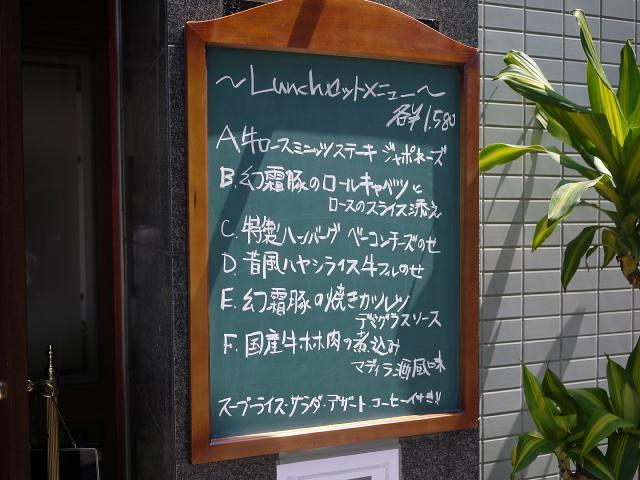 ～Lunchセットメニュー～
各¥1,580
A.牛ロースミニッツステーキ ジャポネーズ
B.幻霜豚のロールキャベツと
ロースのスライス添え
C.特製ハンバーグ ベーコンチーズのせ
D.昔風ハヤシライス牛フルのせ
E.幻霜豚の焼きカツレツ
デミグラスソース
F.国産牛ホホ肉の煮込み
マディラ酒風味
スープ・ライス・サラダ・デザート コーヒー付き